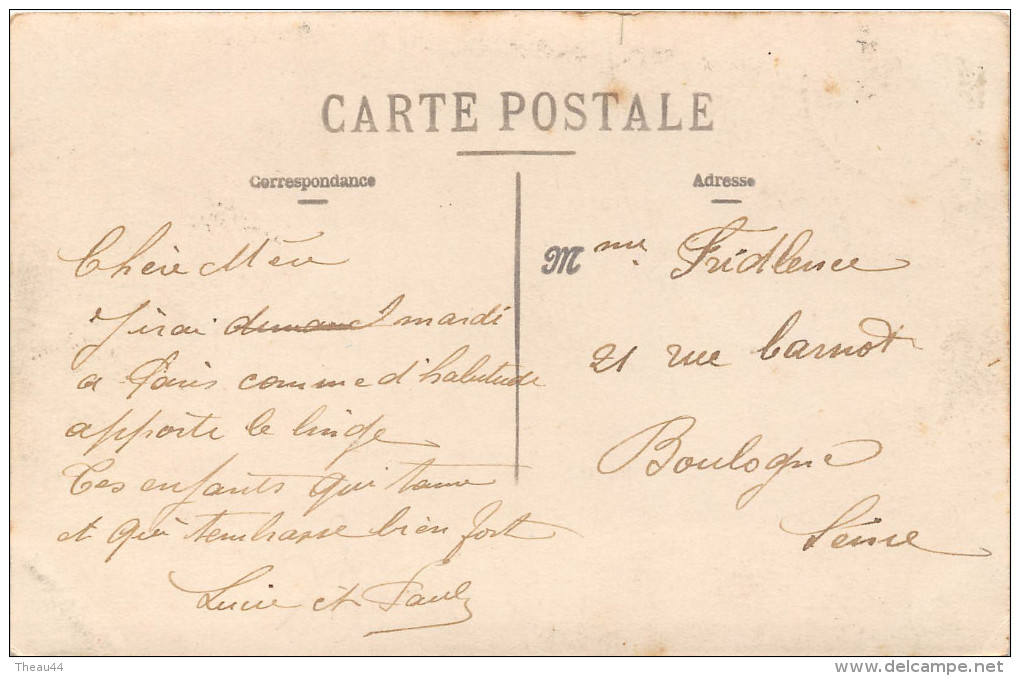 CARTE POSTALE
Correspondance
Chère Mère
J'irai demain mardi
a Paris comme d'habitude
apporte le linge
Tes enfants qui taime
et qui tembrasse bien fort
Lucie et Paul
Adresse
Mme Fridlence
21 rue Carnot
Boulogne
Seine
Theau44
delcampe.net